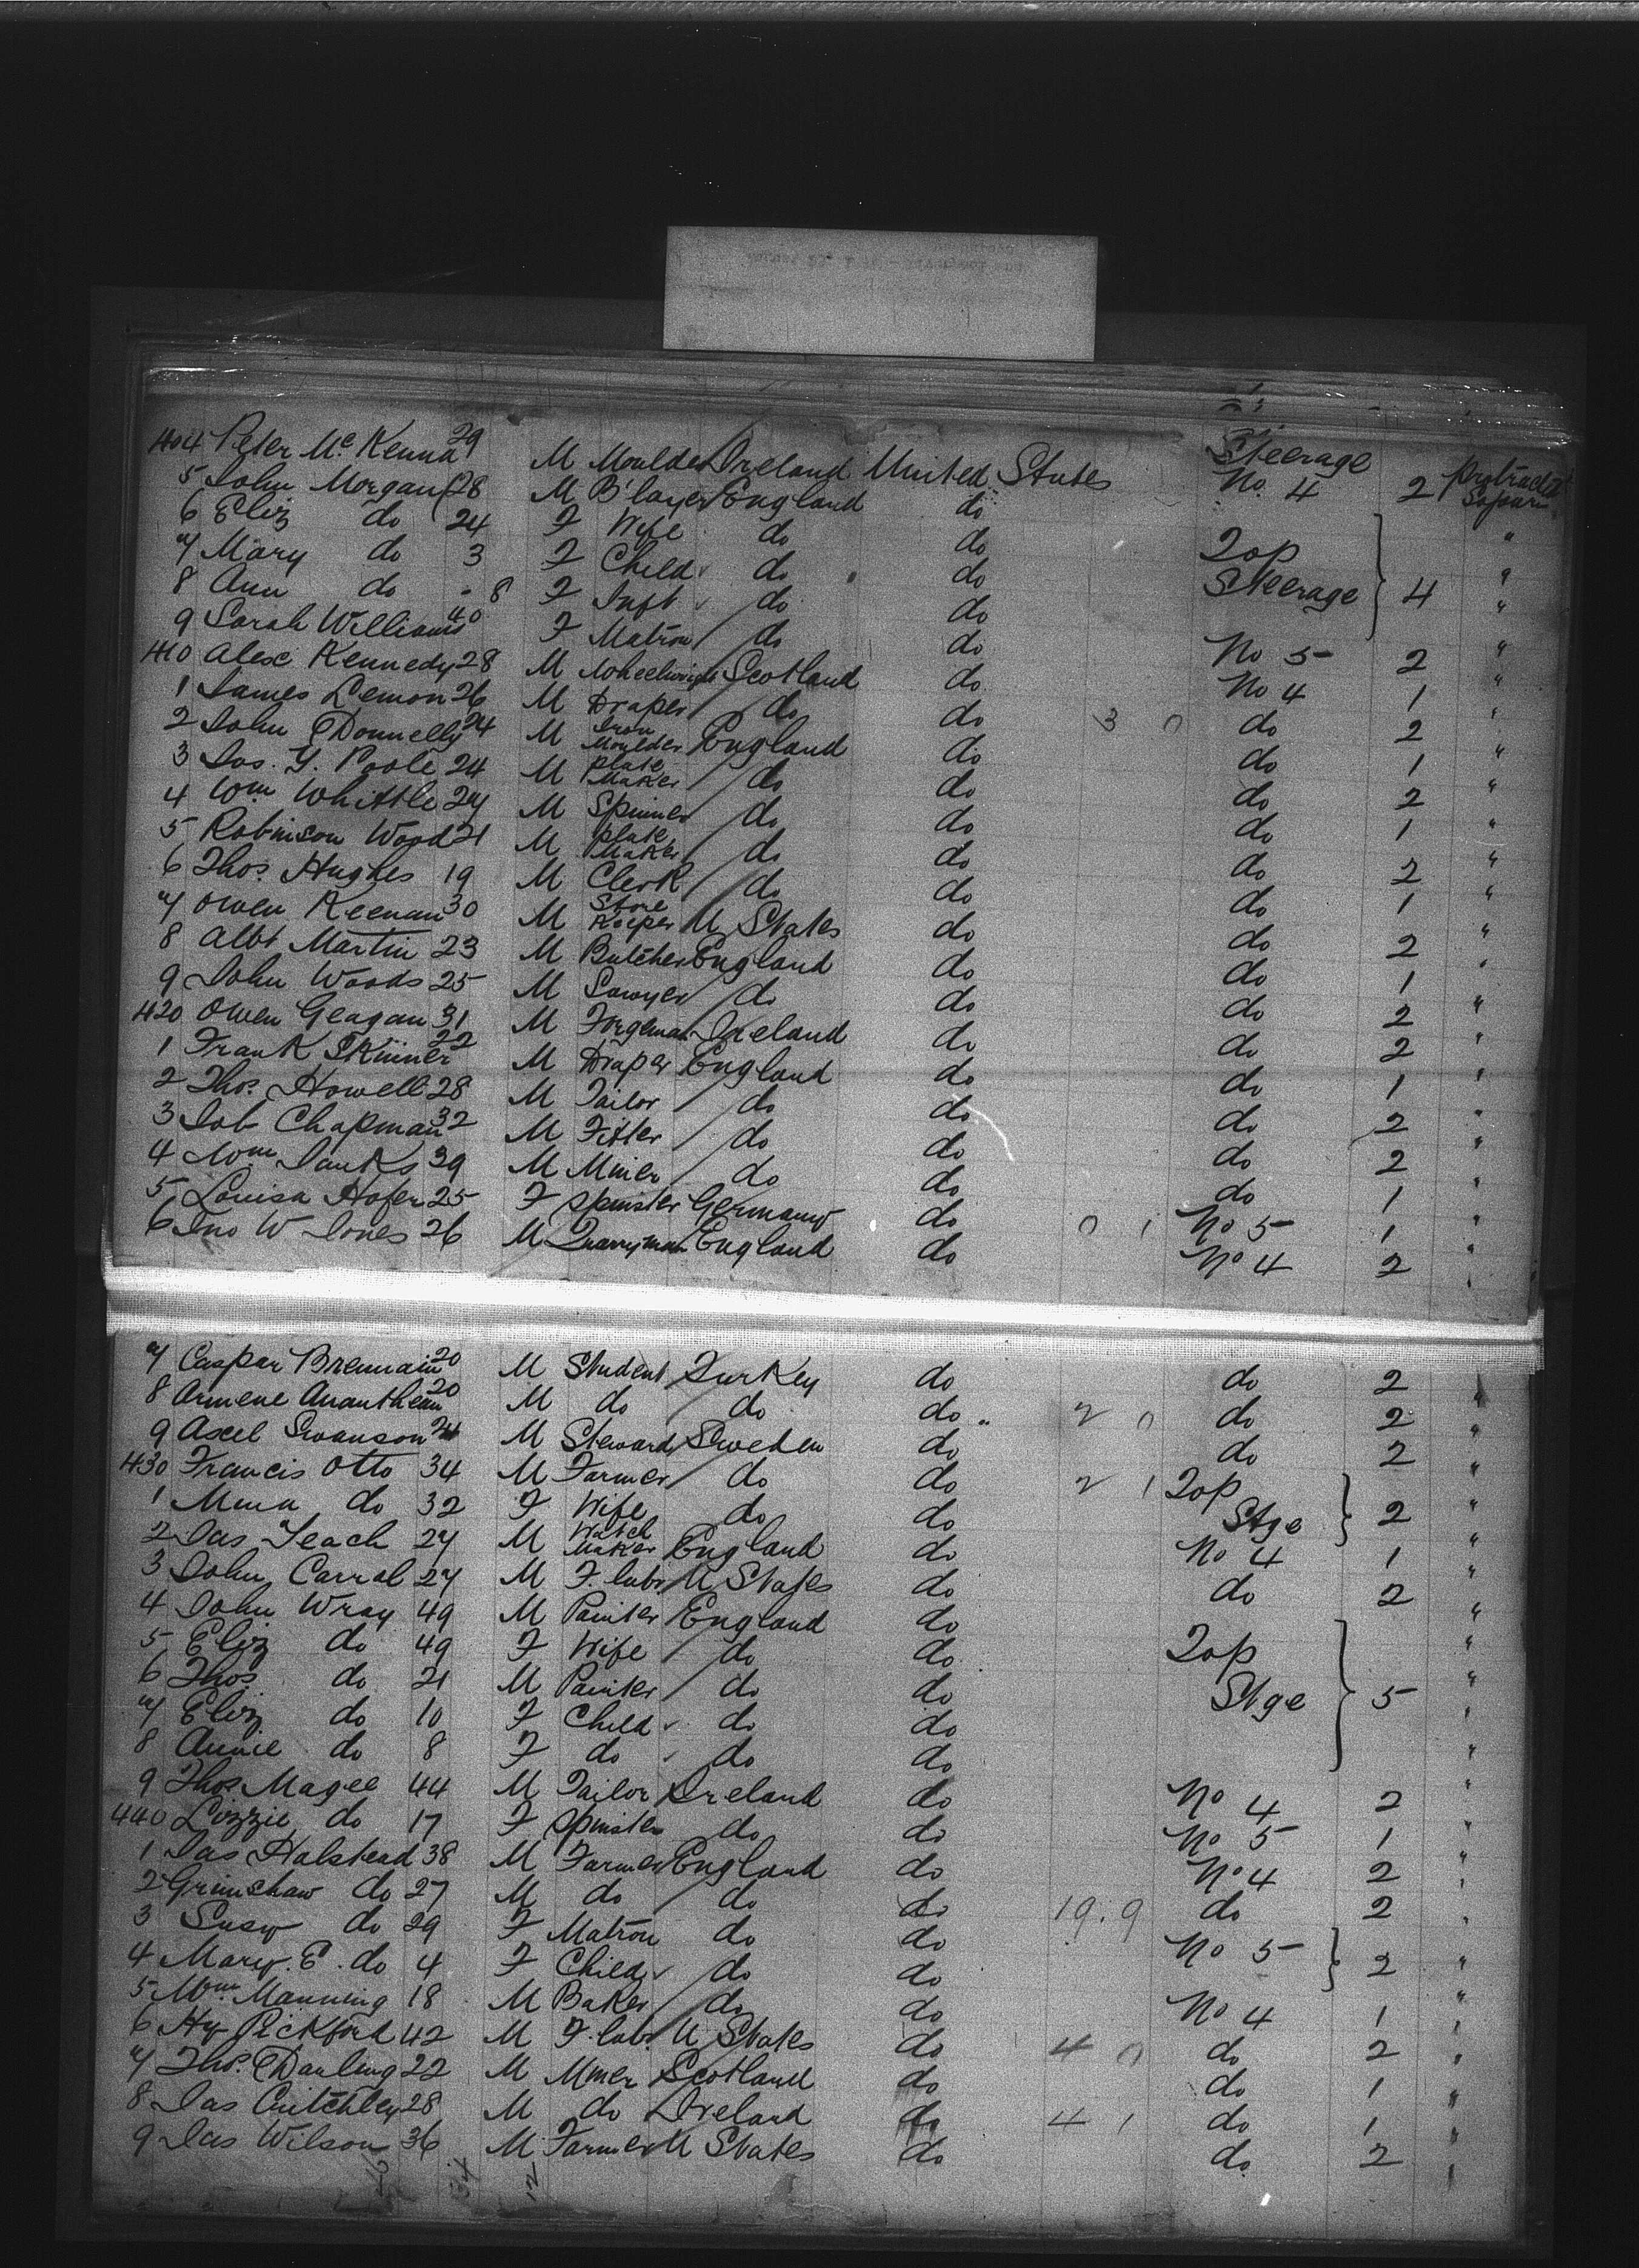 404 Peter Mc Kenna 29 M Moulder Ireland United States Steerage No. 4 2 Protracted Sojourn
5 John Morgan 28 M B'layer England do
6 Eliz do 24 F Wife do do "
7 Mary do 3 F Child do do Top "
8 Ann do - 8 F Inft do do Steerage 4 "
9 Sarah Williams 40 F Matron do do No 5 2 "
410 Alex Kennedy 28 M Wheelwright Scotland do No 4 1 "
1 James Lemon 26 M Draper do do 3 0 do 2 "
2 John O'Donnelly 24 M Iron Moulder England do do 1 "
3 Jos. Y. Poole 24 M Plate Maker do do do 2 "
4 Wm Whittle 27 M Spinner do do do 1 "
5 Robinson Wood 21 M Plate Maker do do do 2 "
6 Thos. Hughes 19 M Clerk do do do 1 "
7 Owen Keenan 30 M Store Keeper U States do do 2 "
8 Albt Martin 23 M Butcher England do do 1 "
9 John Woods 25 M Sawyer do do do 2 "
420 Owen Geagan 31 M Forgeman Ireland do do 2 "
1 Frank Skinner 22 M Draper England do do 1 "
2 Thos. Howell 28 M Tailor do do do 2 "
3 Job Chapman 32 M Fitter do do do 2 "
4 Wm Janks 39 M Miner do do do 1 "
5 Louisa Hofer 25 F Spinster Germany do 0 1 No 5 1 "
6 Jno W Jones 26 M Quarryman England do No 4 2 "
7 Caspar 20 M Student Turkey do do 2 "
8 Armene 20 M do do do 2 0 do 2 "
9 Axel Swanson 24 M Steward Sweden do do 2 "
430 Francis Otto 34 M Farmer do do 2 1 Top "
1 Mina do 32 F Wife do do Stge 2 "
2 Jas Leach 27 M Watch Maker England do No 4 1 "
3 John Carrol 27 M F. labr U States do do 2 "
4 John Wray 49 M Painter England do "
5 Eliz do 49 F Wife do do Top "
6 Thos do 21 M Painter do do Stge 5 "
7 Eliz do 10 F Child do do "
8 Annie do 8 F do do do "
9 Thos Magee 44 M Tailor Ireland do No 4 2 "
440 Lizzie do 17 F Spinster do do No 5 1 "
1 Jas Halstead 38 M Farmer England do No 4 2 "
2 Grimshaw do 27 M do do do 19.9 do 2 "
3 Susy do 29 F Matron do do No 5 2
4 Mary. E. do 4 F Child do do "
5 Wm Manning 18 M Baker do do No 4 1 "
6 Hy Pickford 42 M F. labr U States do 4 0 do 2 "
7 Thos. 22 M Miner Scotland do do 1 "
8 Jas Critchley 28 M do Ireland do 4 1 do 1 "
9 Jas Wilson 36 M Farmer U States do do 2 "